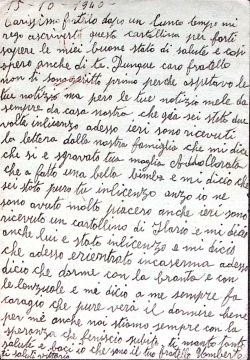 15-10-1940-
Carissimo fratello dopo un lunco tempo mi
rego a scriverti questa cartollina per farti
sapere le miei buone stato di salute e cosi
spero anche di te. Dunque caro fratello
non ti scritto primo perche aspetavo le
tue notizie ma pero le tue notizie mele da
sempre da casa nostra. che gda sei stato due
volti inlicenzo adesso ieri sono ricevuti
la lettera dalla nostra famiglia che mi dice
che si e sgravato tua moglia Addollorata
che a fatto una bella bimba e mi dicio che
sei stato puro tu inlicenzo anzo io ne
sono avuto molto piacero anche ieri sono
ricevuto un cartollino di Ilario e mi dicio
anche lui e stato inlicenzo e mi dicio
che adesso erientrato incaserma adesso
dicio che dorme con la branta e con
le lonzuole e me dicio a me sempre fa
caragio che pure verà il dormire bene
per me anche noi stiamo sempre con la
speranza che feniscio subito, ti manto tanti
saluti e baci io che sono il tuo fratello Umberto
ti saluto